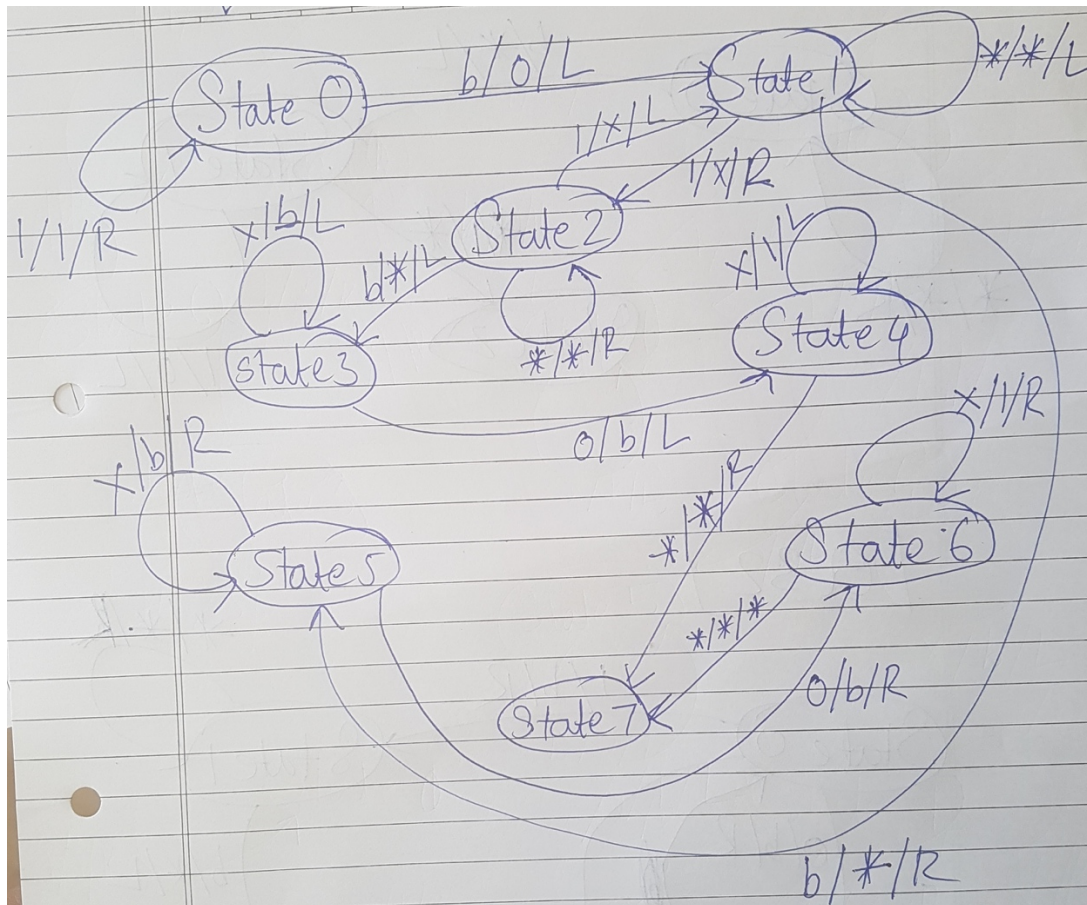 State 0
b/0/L
State 1
*/*/L
1/1/R
1/x/L
1/x/R
State 2
x/b/L
b/*/L
*/*/R
x/1/L
State 4
state 3
0/b/L
x/b/R
*/*/R
x/1/R
State 5
State 6
*/*/*
0/b/R
State 7
b/*/R